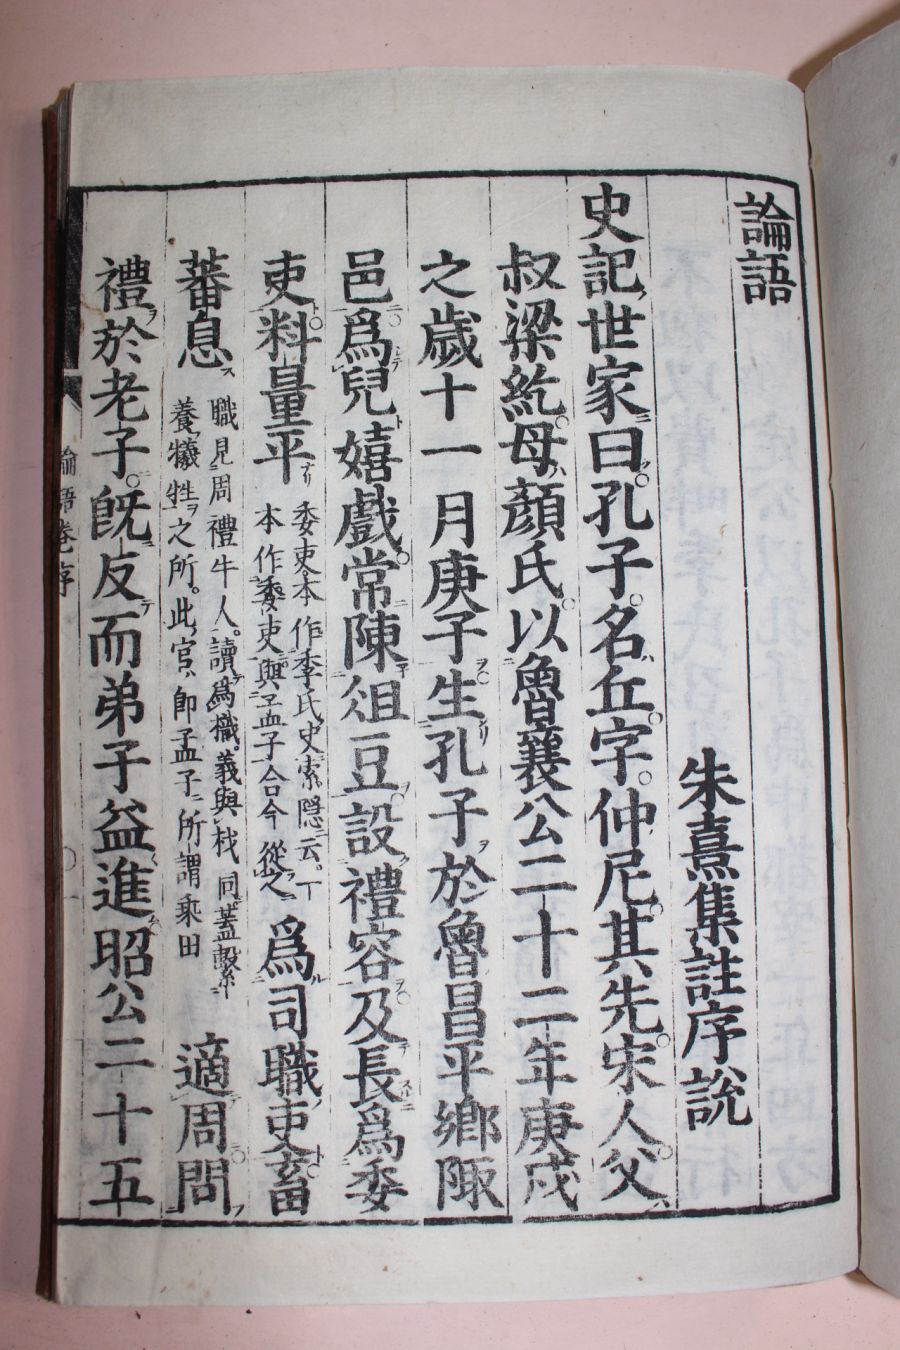 論語
朱熹集註序說
史記世家曰孔子。名丘。字仲尼。其先。宋人。父
叔梁紇。母顏氏。以魯襄公二十二年庚戌
之歲十一月庚子生孔子於魯昌平鄉陬
邑。爲兒嬉戲。常陳俎豆。設禮容。及長。爲委
吏。料量平
委吏本作季氏史索隱云。一
本作委吏與孟子合今從之
爲司職吏。畜
蕃息
職見周禮牛人。讀爲樴義與杙同蓋繫
養犧牲之所。此官即孟子所謂乘田
適周。問
禮於老子。既反而弟子益進昭公二十五
論語卷序